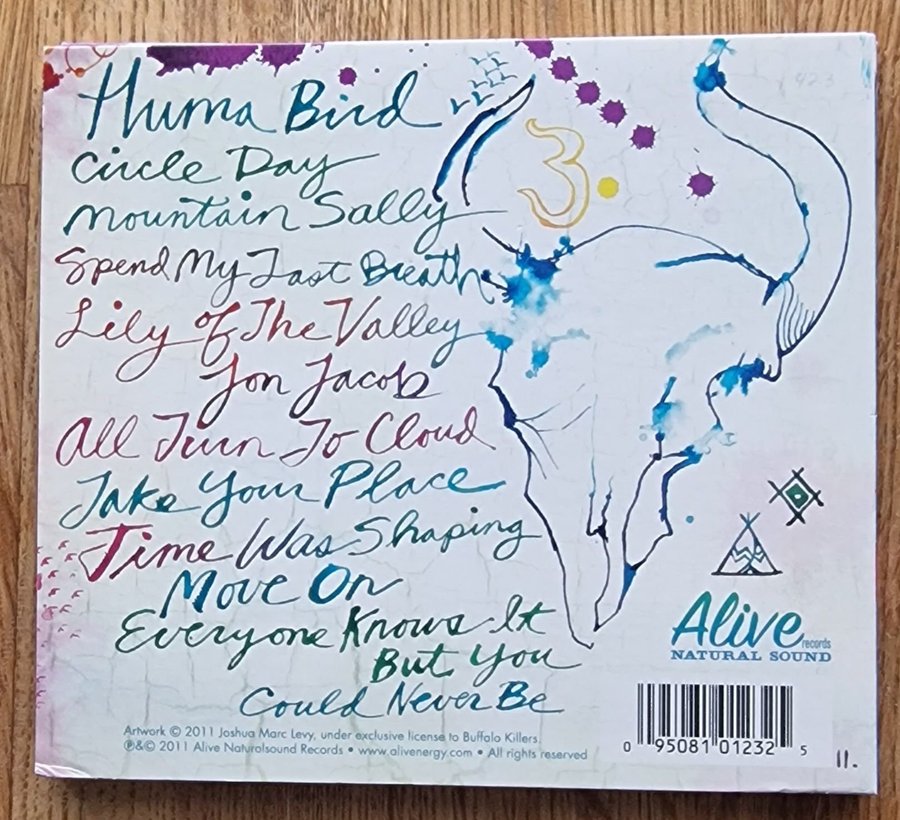 Huma Bird
Circle Day
Mountain Sally
Spend My Last Breath
Lily of The Valley
Jon Jacob
All Turn To Cloud
Take Your Place
Time Was Shaping
Move On
Everyone Knows It
But You
Could Never Be
3
423
Alive
records
NATURAL SOUND
Artwork © 2011 Joshua Marc Levy, under exclusive license to Buffalo Killers.
℗&© 2011 Alive Naturalsound Records • www.alivenergy.com • All rights reserved
0 95081 01232 5
11.